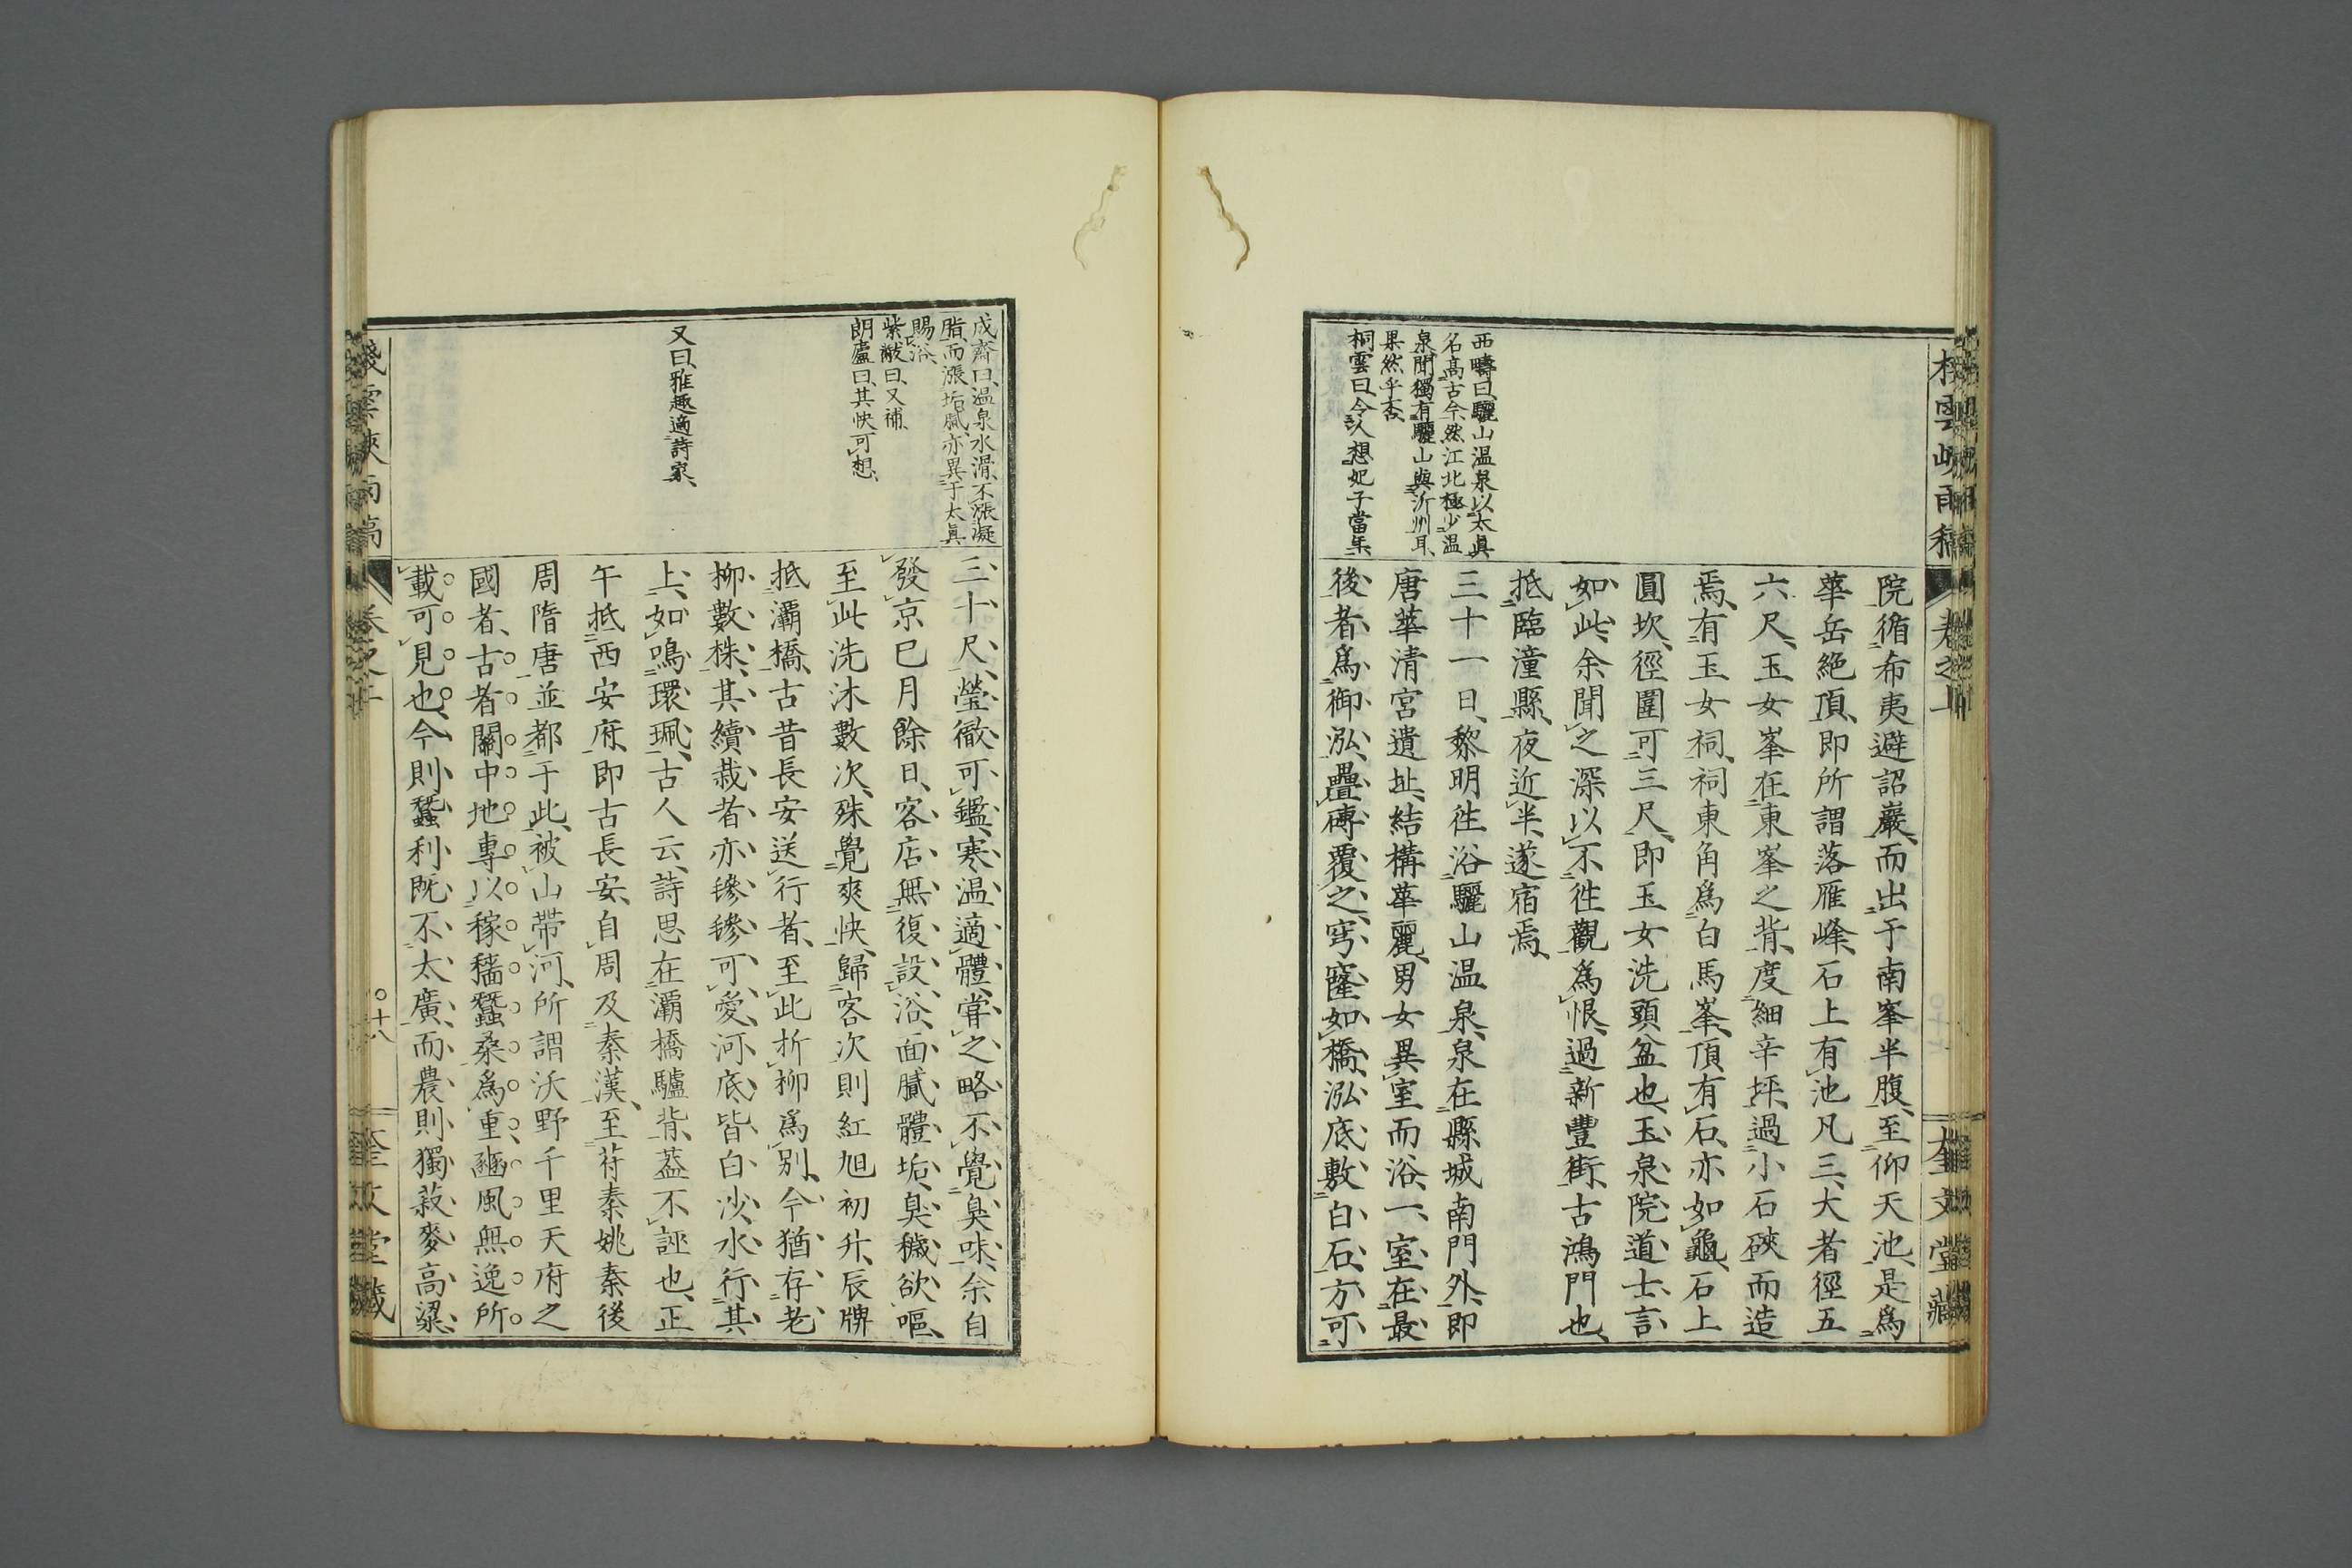 棧雲峽雨稿
卷之上
奎文堂藏
西疇曰、驪山温泉以太眞
名高古今、然江北極少温
泉、聞獨有驪山與沂州耳、
果然乎否、
桐雲曰、令人想妃子當年、
院循布夷避詔巖、而出于南峯半腹、至仰天池、是爲
華岳絕頂、即所謂落雁峰、石上有池凡三、大者徑五
六尺、玉女峯在東峯之背、度細辛坪、過小石硤而造
焉、有玉女祠、祠東角爲白馬峯、頂有石、亦如龜、石上
圓坎、徑圍可三尺、即玉女洗頭盆也、玉泉院道士言
如此、余聞之深以不徃觀爲恨、過新豐街、古鴻門也、
抵臨潼縣、夜近半、遂宿焉、
三十一日、黎明徃浴驪山温泉、泉在縣城南門外、即
唐華清宮遺址、結構華麗、男女異室而浴、一室在最
後者、爲御泓、疊磚覆之、穹窿如橋、泓底敷白石、方可
成齋曰、温泉水滑、不漲凝
脂、而漲垢膩、亦異于太眞
賜浴、
紫歡曰、又補、
朗廬曰、其快可想、
又曰、雅趣適詩家、
三十尺、瑩徹可鑑、寒温適體、甞之略不覺臭味、余自
發京已月餘日、客店無復設浴、面膩體垢、臭穢欲嘔、
至此洗沐數次、殊覺爽快、歸客次則紅旭初升、辰牌
抵灞橋、古昔長安送行者、至此折柳爲別、今猶存老
柳數株、其續栽者亦毿毿可愛、河底皆白沙、水行其
上、如鳴環珮、古人云、詩思在灞橋驢背、葢不誣也、正
午抵西安府、即古長安、自周及秦漢、至苻秦姚秦後
周隋唐並都于此、被山帶河、所謂沃野千里天府之
國者、古者關中地專以稼穡蠶桑爲重、豳風無逸所
載可見也、今則蠶利既不太廣、而農則獨菽麥高粱、
棧雲峽雨稿
卷之上
〇十八
奎文堂藏